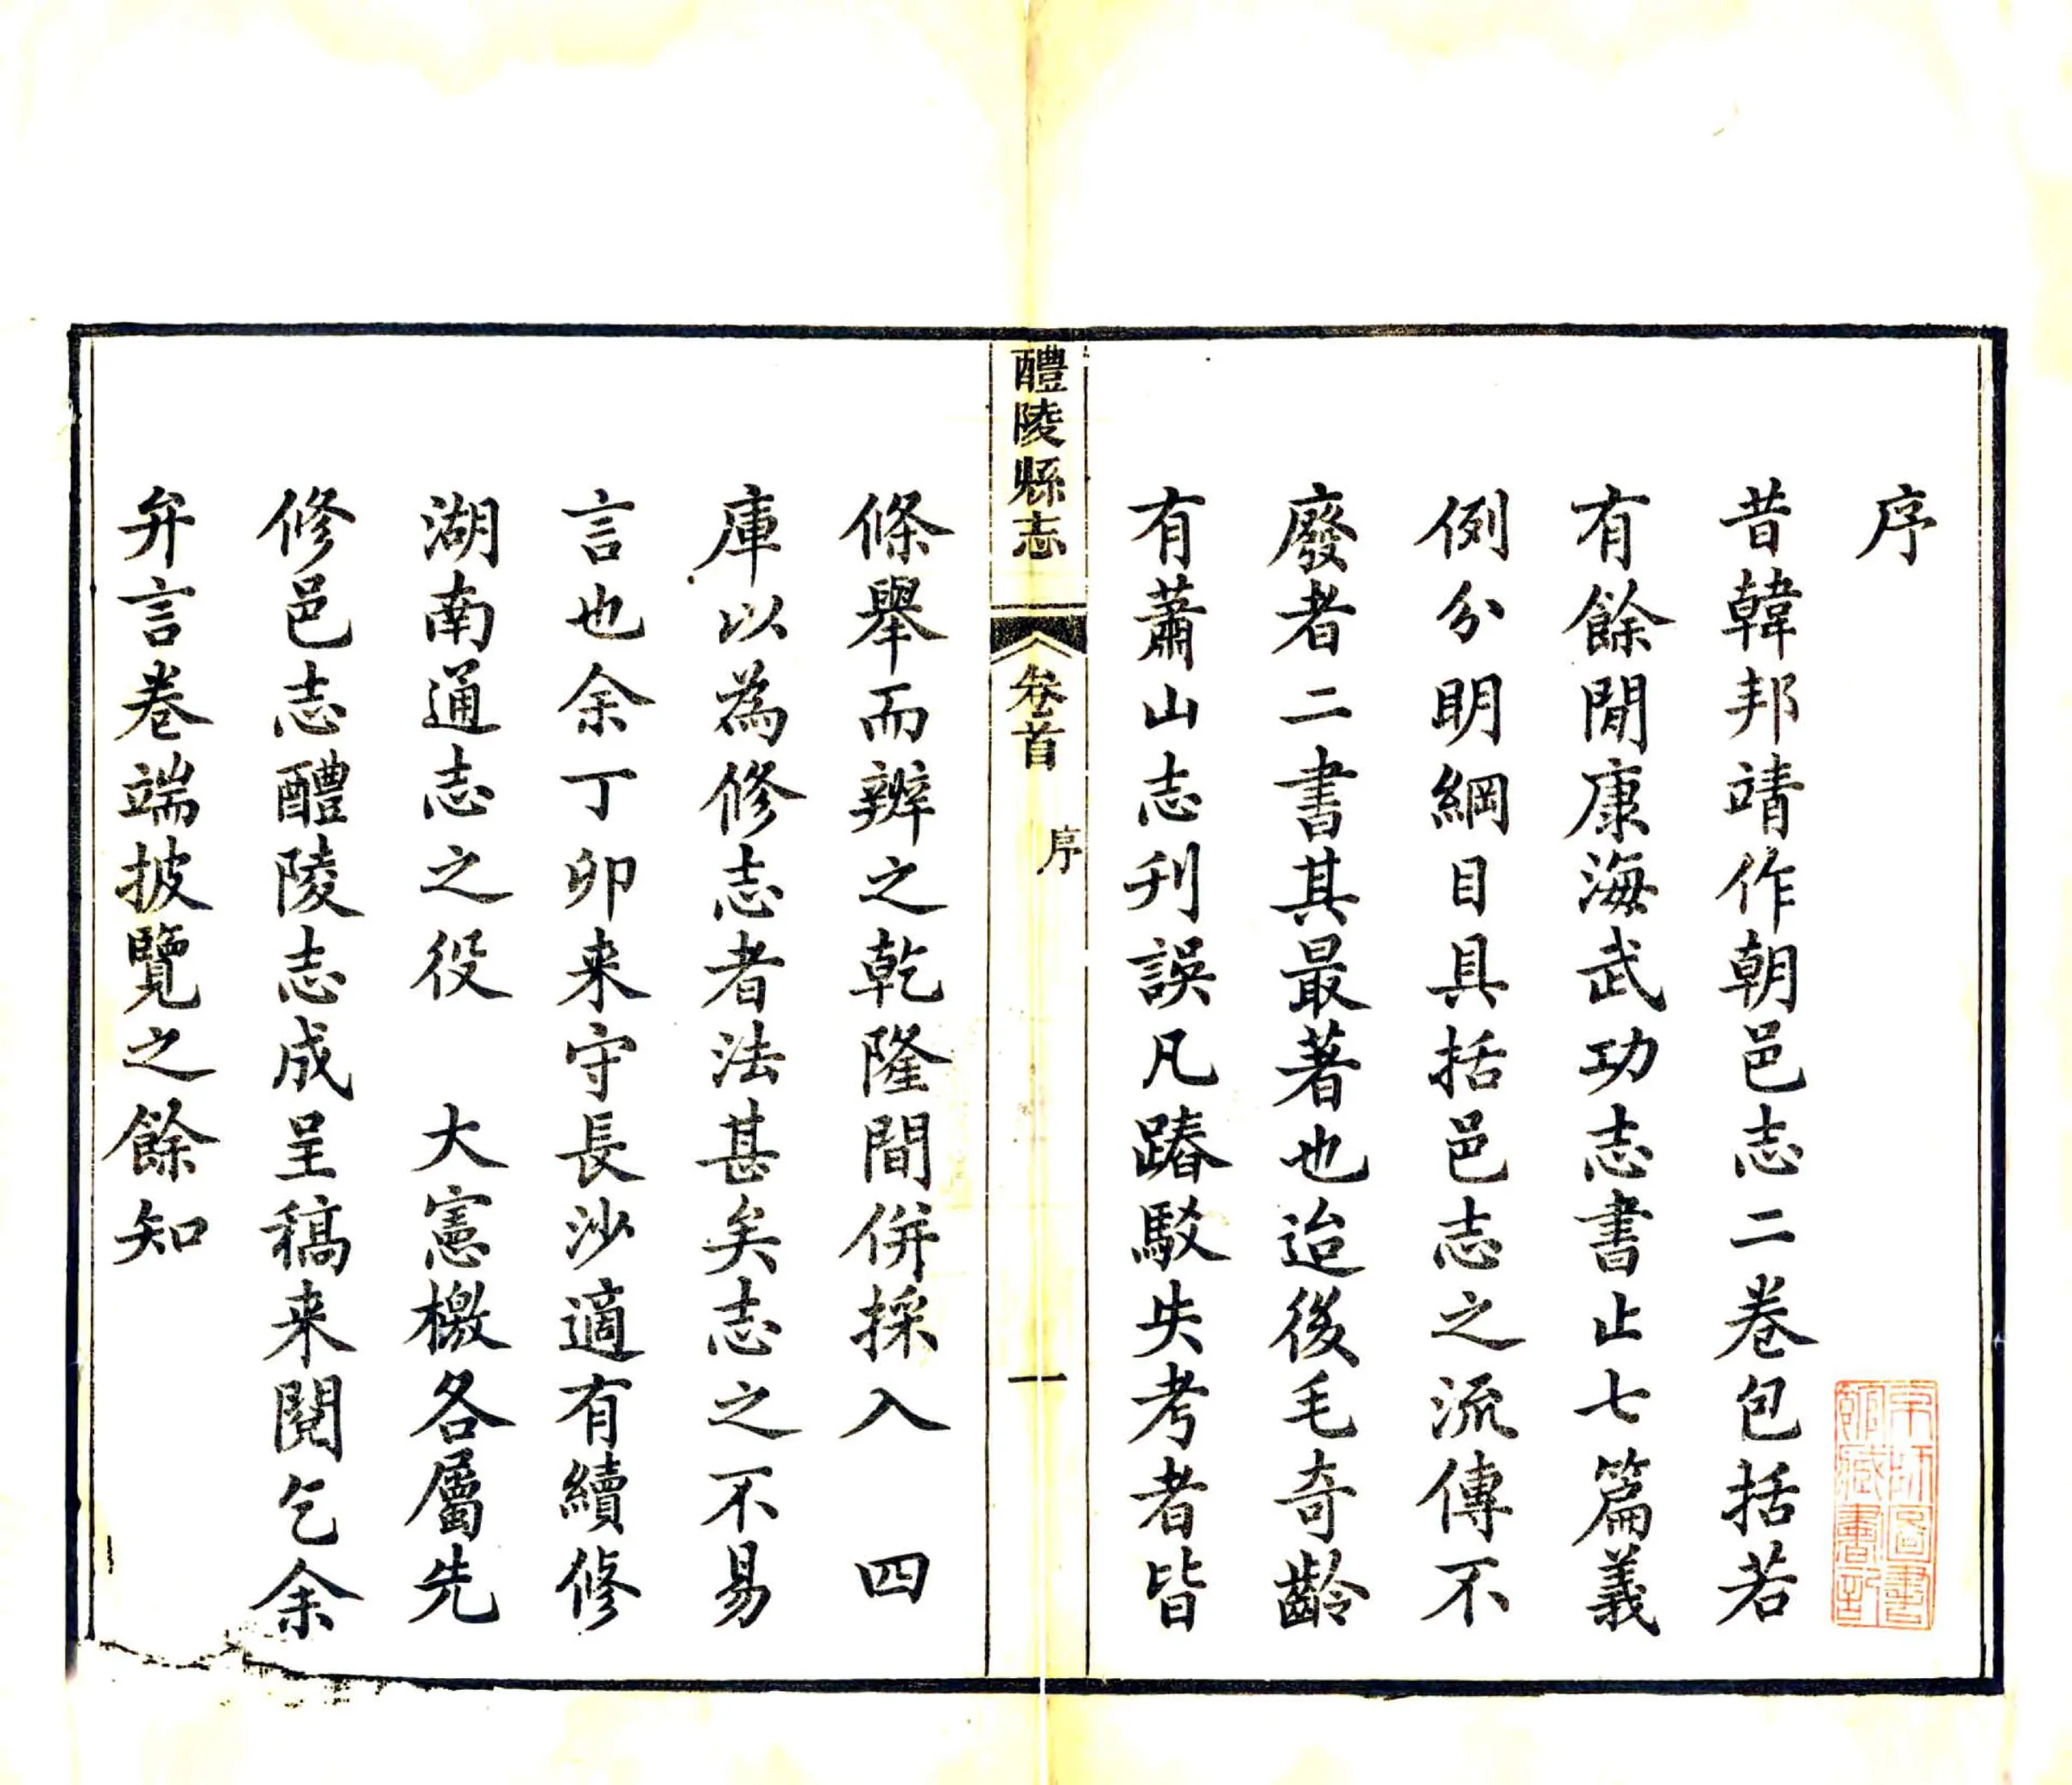 序
昔韓邦靖作朝邑志二卷包括若
有餘閒康海武功志書止七篇義
例分明綱目具括邑志之流傳不
廢者二書其最著也迨後毛奇齡
有蕭山志刋誤凡踳駁失考者皆
醴陵縣志
卷首
序
一
條舉而辨之乾隆間併採入 四
庫以為修志者法甚矣志之不易
言也余丁卯来守長沙適有續修
湖南通志之役 大憲檄各屬先
修邑志醴陵志成呈稿来閱乞余
弁言卷端披覽之餘知